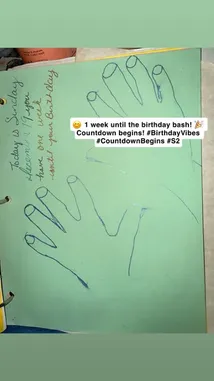 Today is Sunday
you
have one week
until your Birthday
😊 1 week until the birthday bash! 🎉
Countdown begins! #BirthdayVibes
#CountdownBegins #S2